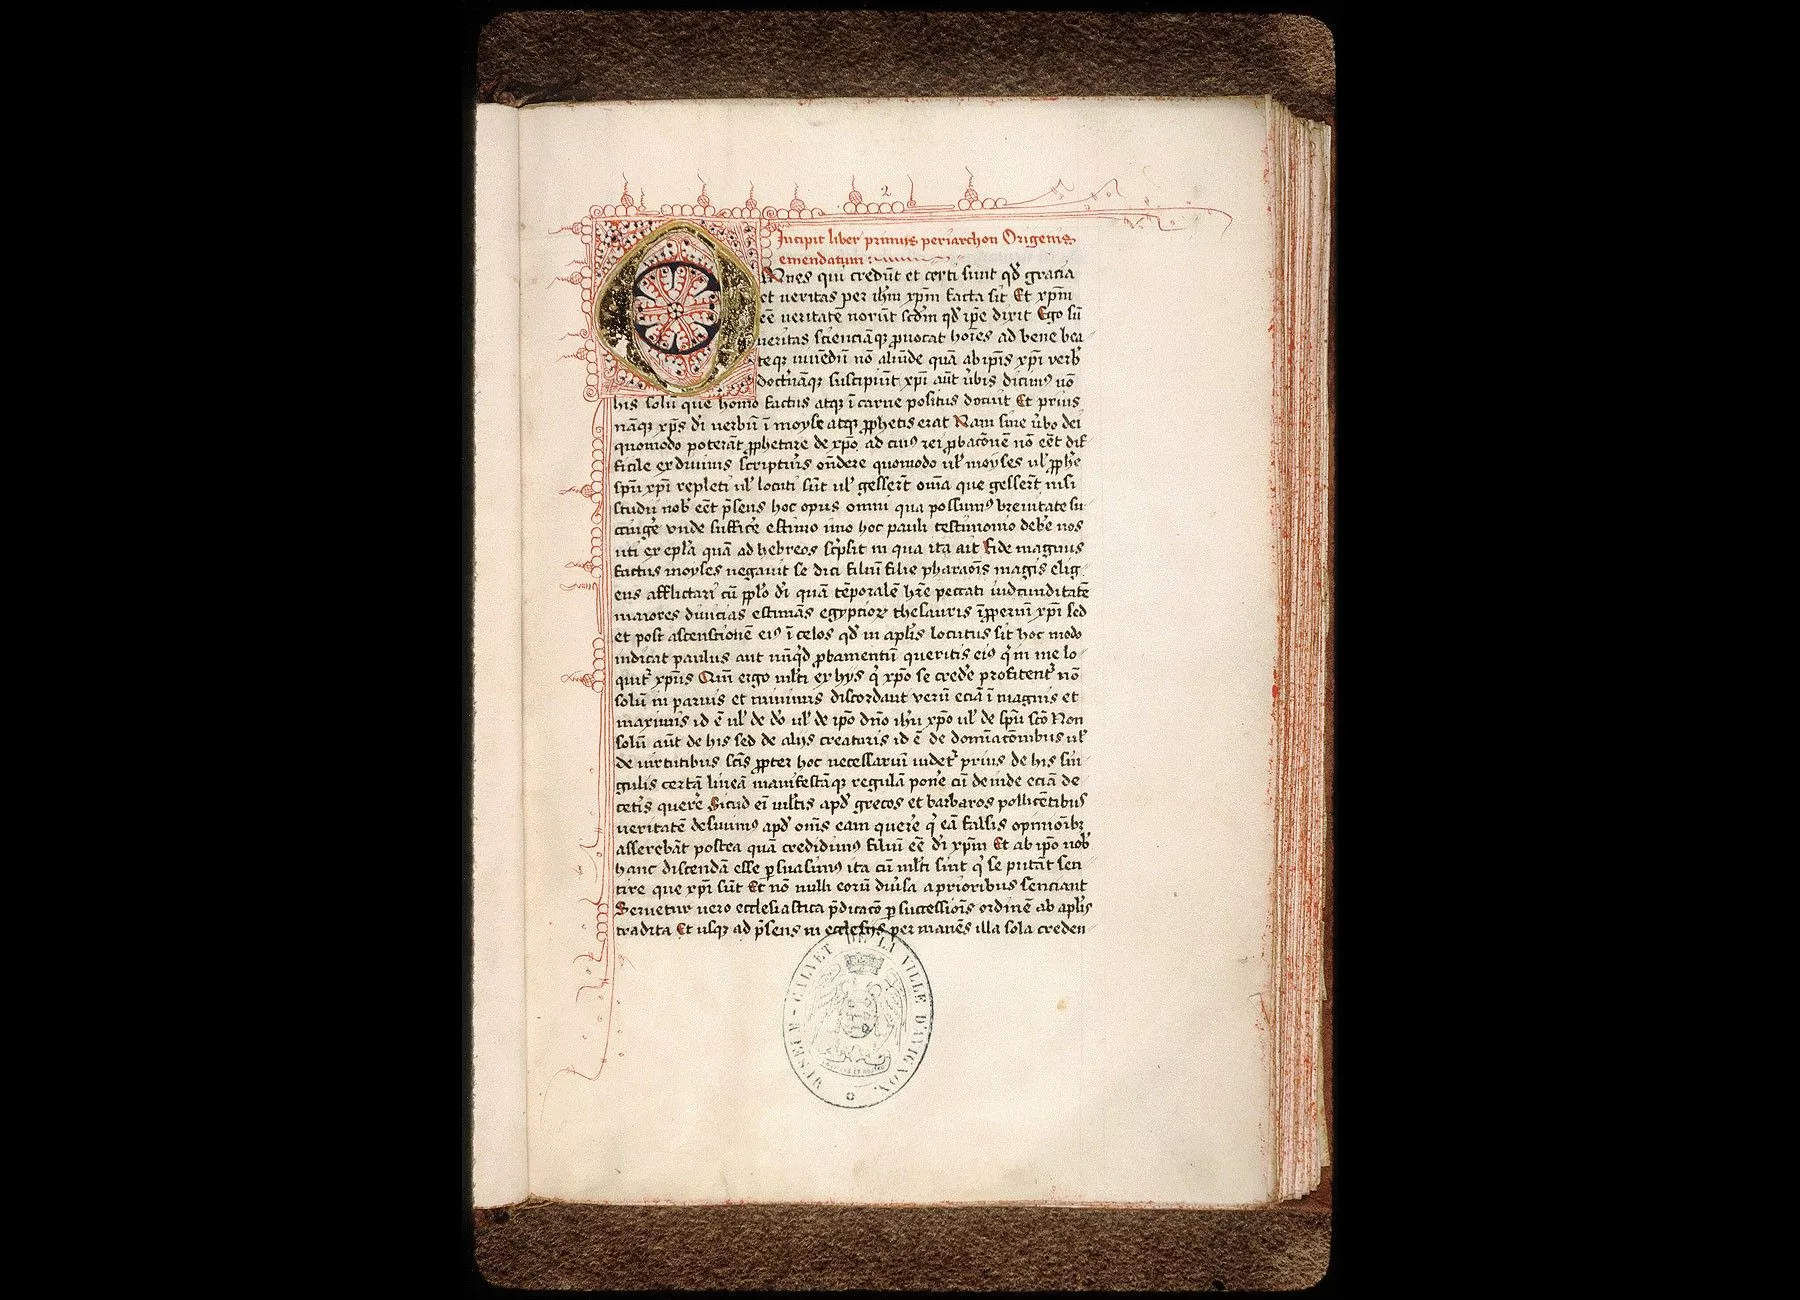 2
Incipit liber primus periarchon Origenis
emendatum
OMnes qui credūt et certi sunt qđ gracia
et ueritas per ihm xp̄m facta sit Et xp̄m
eē ueritatē norūt scđm qđ ip̄e dixit Ego sū
ueritas scienciāqꝫ ꝓuocat hoīes ad bene bea
teqꝫ uiuēdū nō aliūde quā ab ip̄is xp̄i verb̾
doctⁱnaqꝫ suscipiūt xp̄i aūt ūbis dicimꝰ nō
his solū que homo factus atqꝫ ī carne positus docuit Et prius
nāqꝫ xp̄s dī uerbū ī moyse atqꝫ ꝓphetis erat Nam sine ūbo dei
quomodo poterāt ꝓphetare de xp̄o ad cuiꝰ rei ꝓbacōnē nō eēt dif
ficile ex diuinis scripturis on̄dere quomodo ul̾ moyses ul̾ ꝓphe
sp̄u xp̄i repleti ul̾ locuti sūt ul̾ gesser̄t om̄ia que gesser̄t nisi
studii nob̾ eēt p̄sens hoc opus omni qua possumꝰ breuitate su
ccinge᷑ vnde suffice᷑ estimo uno hoc pauli testimonio debe᷑ nos
uti ex ep̄la quā ad hebreos sc̾psit in qua ita ait Fide magnus
factus moyses negauit se dici filiū filie pharaoīs magis elig
ens afflictari cū pp̄lo dī quā tēporalē hr̄e peccati iucunditatē
maiores diuicias estimās egyptioꝝ thesauris īpꝑeriū xp̄i sed
et post ascensionē eiꝰ ī celos qđ in ap̄lis locutus sit hoc modo
indicat paulus aut nūqđ ꝓbamentū queritis eiꝰ qⁱ in me lo
quit᷑ xp̄us Qm̄ ergo ml̾ti ex hys qⁱ xp̄o se crede᷑ profitent᷑ nō
solū in paruis et minimis discordant verū eciā ī magnis et
maximis id ē ul̾ de do ul̾ de ip̄o dn̄o ihu xp̄o ul̾ de sp̄u sc̄o Non
solū aūt de his sed de alijs creaturis id ē de domīacōnibus ul̾
de uirtutibus sc̄is ꝓpter hoc necessariū uidet᷑ prius de his sin
gulis certā lineā manifestāqꝫ regulā pone᷑ cū deinde eciā de
cetīs quere᷑ Sicud eī ml̾tis apđ grecos et barbaros pollicētibus
ueritatē desiuimꝰ apđ om̄s eam quere᷑ qⁱ eā falsis opinioībꝫ
asserebāt postea quā credidimꝰ filiū eē dī xp̄m Et ab ip̄o nob̾
hanc discendā esse ꝑsuasimꝰ ita cū ml̾ti sint qⁱ se putāt sen
tire que xp̄i sūt Et nō nulli eorū diūsa a prioribus senciant
Seruetur uero ecclesiastica p̄dicacō ꝑ successiōis ordinē ab ap̄lis
tradita Et usqꝫ ad p̄sens in ecclesijs per manēs illa sola creden
MUSEE-CALVET DE LA VILLE D'AVIGNON.